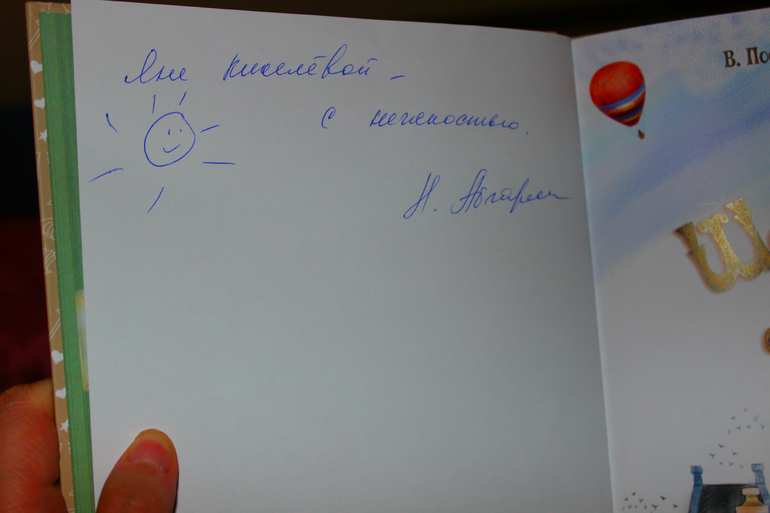 Яне Киселёвой –
с нежностью.
Н. Абгарян
В. По
Ш